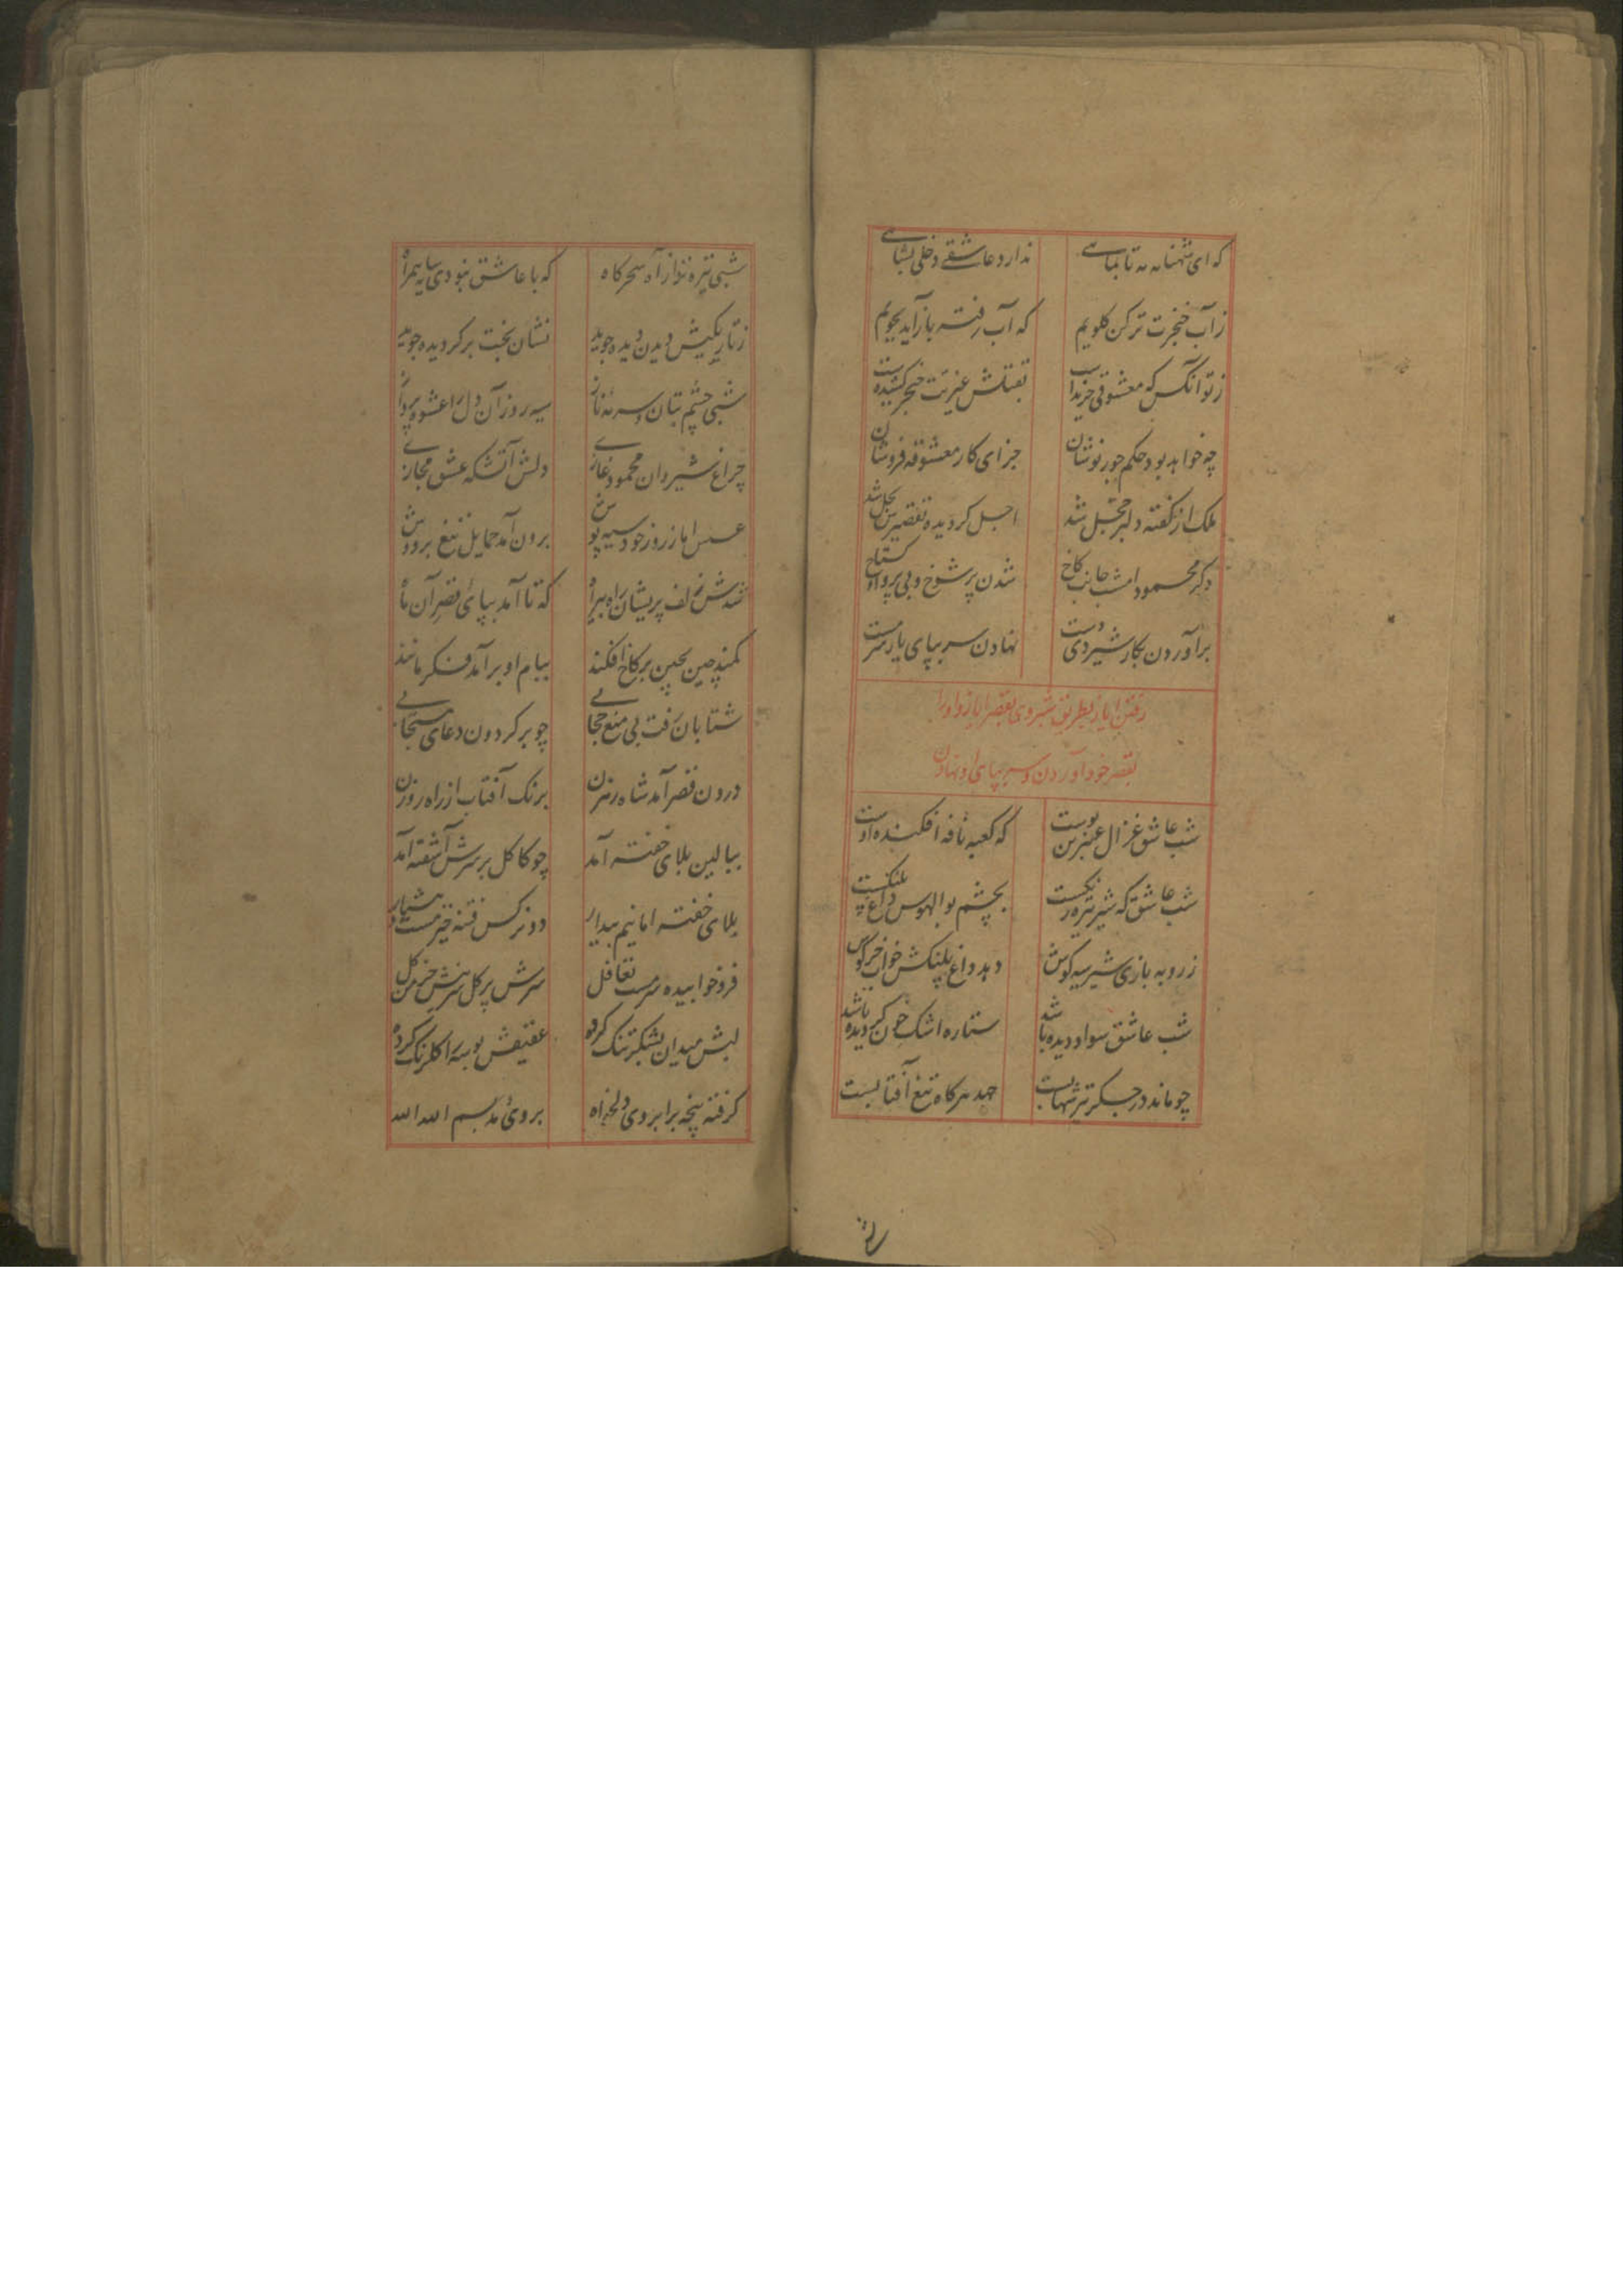 که ای شهنشاه مه تا بماهی ندارد عاشقی دخلی بشاهی
ز آب خنجرت تر کن کلویم که آب رفته باز آید بجویم
ز تو آنکس که معشوقی خریدست بقتلش غیرتت خنجر کشیدست
چه خواهد بود حکم جورنوشان جزای کار معشوقه فروشان
ملک از کفته دلبر خجل شد اجل کردیده تقصیرش بحل شد
دکر محمود امشب جانب کاخ شدن پر شوخ و بی پروا و کستاخ
برآوردن بکار شبروی دست نهادن سر بپای یار سرمست
رفتن ایاز بطریق شبروی بقصر ایاز و او را
بقصر خود آوردن و سر بپای او نهادن
شب عاشق غزال عنبرین پوست که کعبه نافه افکنده اوست
شب عاشق که شیر تیره رنکست بچشم بوالهوس داغ پلنکست
ز روبه بازی شیر سیه کوش دهد داغ پلنکش خواب خرکوش
شب عاشق سواد دیده باشد ستاره اشک خون کردیده باشد
چو ماند در جکر تیر شهابست جهد هرکاه تیغ آفتابست
شبی تیره تر از آه سحرکاه که با عاشق نبودی سایه همراه
ز تاریکیش دیدن دیده جویید نشان بخت برکردیده جویید
شبی چشم بتان و سرمه ناز سیه روز آن دل را عشوه پرداز
چراغ شبروان محمود غازی دلش آتشکه عشق مجازی
عسس اما ز روز خود سیه پوش برون آمد حمایل تیغ بر دوش
شدش زلف پریشان راه بیراه که تا آمد بپای قصر آن ماه
کمند چین بچین بر کاخ افکند ببام او برآمد فکر مانند
شتابان رفت بی منع حجابی چو بر کردون دعای مستجابی
درون قصر آمد شاه رهزن برنک آفتاب از راه روزن
ببالین بلای خفته آمد چو کاکل بر سرش آشفته آمد
بلای خفته اما نیم بیدار دو نرکس فتنه خیز مست و هشیار
فرو خوابیده سرمست تغافل سرش پر کل برش خرمن کل
لبش میدان بشکر تنک کرده عقیقش بوسه را کلرنک کرده
کرفته پنجه بر ابروی دلخواه بروی مد بسم الله الله